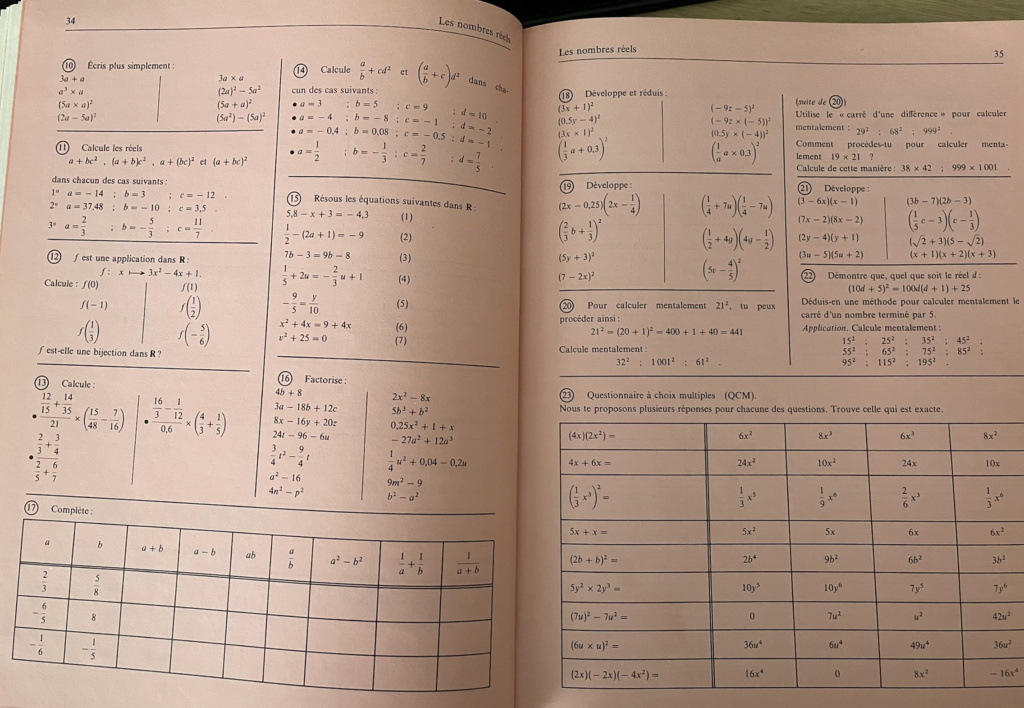 34
Les nombres réels
10 Écris plus simplement :
3a + a
3a × a
a³ × a
(2a)² − 5a²
(5a × a)²
(5a + a)²
(2a − 5a)²
(5a²) − (5a)²
11 Calcule les réels
a + bc² , (a + b)c² , a + (bc)² et (a + bc)²
dans chacun des cas suivants :
1° a = − 14 ; b = 3 ; c = − 12 .
2° a = 37,48 ; b = − 10 ; c = 3,5 .
3° a = 2/3 ; b = − 5/3 ; c = 11/7
12 f est une application dans R :
f : x ⟼ 3x² − 4x + 1.
Calcule : f(0)
f(1)
f(−1)
f(1/2)
f(1/3)
f(−5/6)
f est-elle une bijection dans R ?
13 Calcule :
• (12/15 + 14/35)/21 × (15/48 − 7/16)
• (16/3 − 1/12)/0,6 × (4/3 + 1/5)
• (2/3 + 3/4)/(2/5 + 6/7)
14 Calcule a/b + cd² et (a/b + c)d² dans cha-
cun des cas suivants :
• a = 3 ; b = 5 ; c = 9 ; d = 10
• a = − 4 ; b = − 8 ; c = − 1 ; d = − 2
• a = − 0,4 ; b = 0,08 ; c = − 0,5 ; d = − 1
• a = 1/2 ; b = − 1/3 ; c = 2/7 ; d = 7/5 .
15 Résous les équations suivantes dans R :
5,8 − x + 3 = − 4,3 (1)
1/2 − (2a + 1) = − 9 (2)
7b − 3 = 9b − 8 (3)
1/5 + 2u = − 2/3 u + 1 (4)
− 9/5 = y/10 (5)
x² + 4x = 9 + 4x (6)
v² + 25 = 0 (7)
16 Factorise :
4b + 8
2x² − 8x
3a − 18b + 12c
5b³ + b²
8x − 16y + 20z
0,25x² + 1 + x
24t − 96 − 6u
− 27a² + 12a³
3/4 t² − 9/4 t
1/4 u² + 0,04 − 0,2u
a² − 16
9m² − 9
4n² − p²
b² − a²
17 Complète :
a b a + b a − b ab a/b a² − b² 1/a + 1/b 1/(a + b)
2/3 5/8
− 6/5 8
− 1/6 − 1/5
Les nombres réels
35
18 Développe et réduis :
(3x + 1)²
(− 9z − 5)²
(0,5y − 4)²
(− 9z × (− 5))²
(3x × 1)²
(0,5y × (− 4))²
(1/3 a + 0,3)²
(1/a a × 0,3)²
19 Développe :
(2x − 0,25)(2x − 1/4)
(1/4 + 7u)(1/4 − 7u)
(2/3 b + 1/3)²
(1/2 + 4y)(4y − 1/2)
(5y + 3)²
(5v − 4/5)²
(7 − 2x)²
20 Pour calculer mentalement 21², tu peux
procéder ainsi :
21² = (20 + 1)² = 400 + 1 + 40 = 441
Calcule mentalement :
32² ; 1 001² ; 61² .
(suite de 20)
Utilise le « carré d'une différence » pour calculer
mentalement : 29² ; 68² ; 999² .
Comment procèdes-tu pour calculer menta-
lement 19 × 21 ?
Calcule de cette manière : 38 × 42 ; 999 × 1 001 .
21 Développe :
(3 − 6x)(x − 1)
(3b − 7)(2b − 3)
(7x − 2)(8x − 2)
(1/5 c − 3)(c − 1/3)
(2y − 4)(y + 1)
(√2 + 3)(5 − √2)
(3u − 5)(5u + 2)
(x + 1)(x + 2)(x + 3)
22 Démontre que, quel que soit le réel d :
(10d + 5)² = 100d(d + 1) + 25
Déduis-en une méthode pour calculer mentalement le
carré d'un nombre terminé par 5.
Application. Calcule mentalement :
15² ; 25² ; 35² ; 45² ;
55² ; 65² ; 75² ; 85² ;
95² ; 115² ; 195² .
23 Questionnaire à choix multiples (QCM).
Nous te proposons plusieurs réponses pour chacune des questions. Trouve celle qui est exacte.
(4x)(2x²) = 6x² 8x³ 6x³ 8x²
4x + 6x = 24x² 10x² 24x 10x
(1/3 x³)² = 1/3 x⁵ 1/9 x⁶ 2/6 x³ 1/3 x⁶
5x + x = 5x² 5x 6x 6x²
(2b + b)² = 2b⁴ 9b² 6b² 3b²
5y² × 2y³ = 10y⁵ 10y⁶ 7y⁵ 7y⁶
(7u)² − 7u² = 0 7u² u² 42u²
(6u × u)² = 36u⁴ 6u⁴ 49u⁴ 36u²
(2x)(− 2x)(− 4x²) = 16x⁴ 0 8x² − 16x⁴